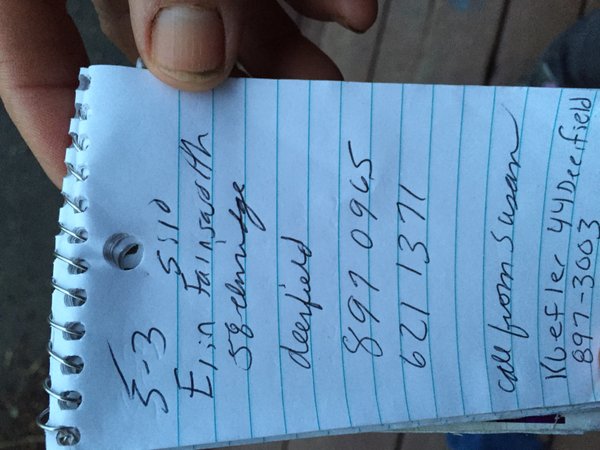 5-3 5:10
Elin Fainsworth
58 elmridge
deerfield
897 0965
621 1371
call from Susan
Kloefler 44 Deerfield
897-3003